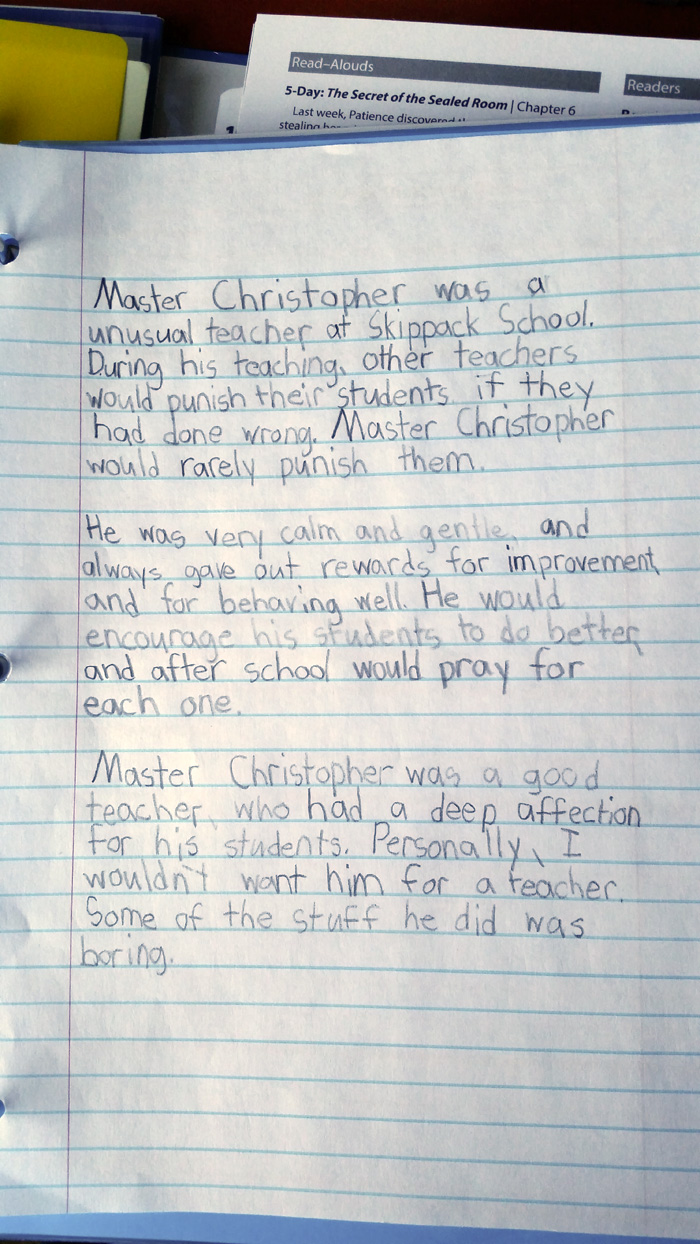 Read-Alouds
Readers
5-Day: The Secret of the Sealed Room | Chapter 6
Last week, Patience discovered
stealing
1.
Master Christopher was a
unusual teacher at Skippack School.
During his teaching, other teachers
would punish their students if they
had done wrong. Master Christopher
would rarely punish them.
He was very calm and gentle, and
always gave out rewards for improvement,
and for behaving well. He would
encourage his students to do better,
and after school would pray for
each one.
Master Christopher was a good
teacher, who had a deep affection
for his students. Personally, I
wouldn't want him for a teacher.
Some of the stuff he did was
boring.